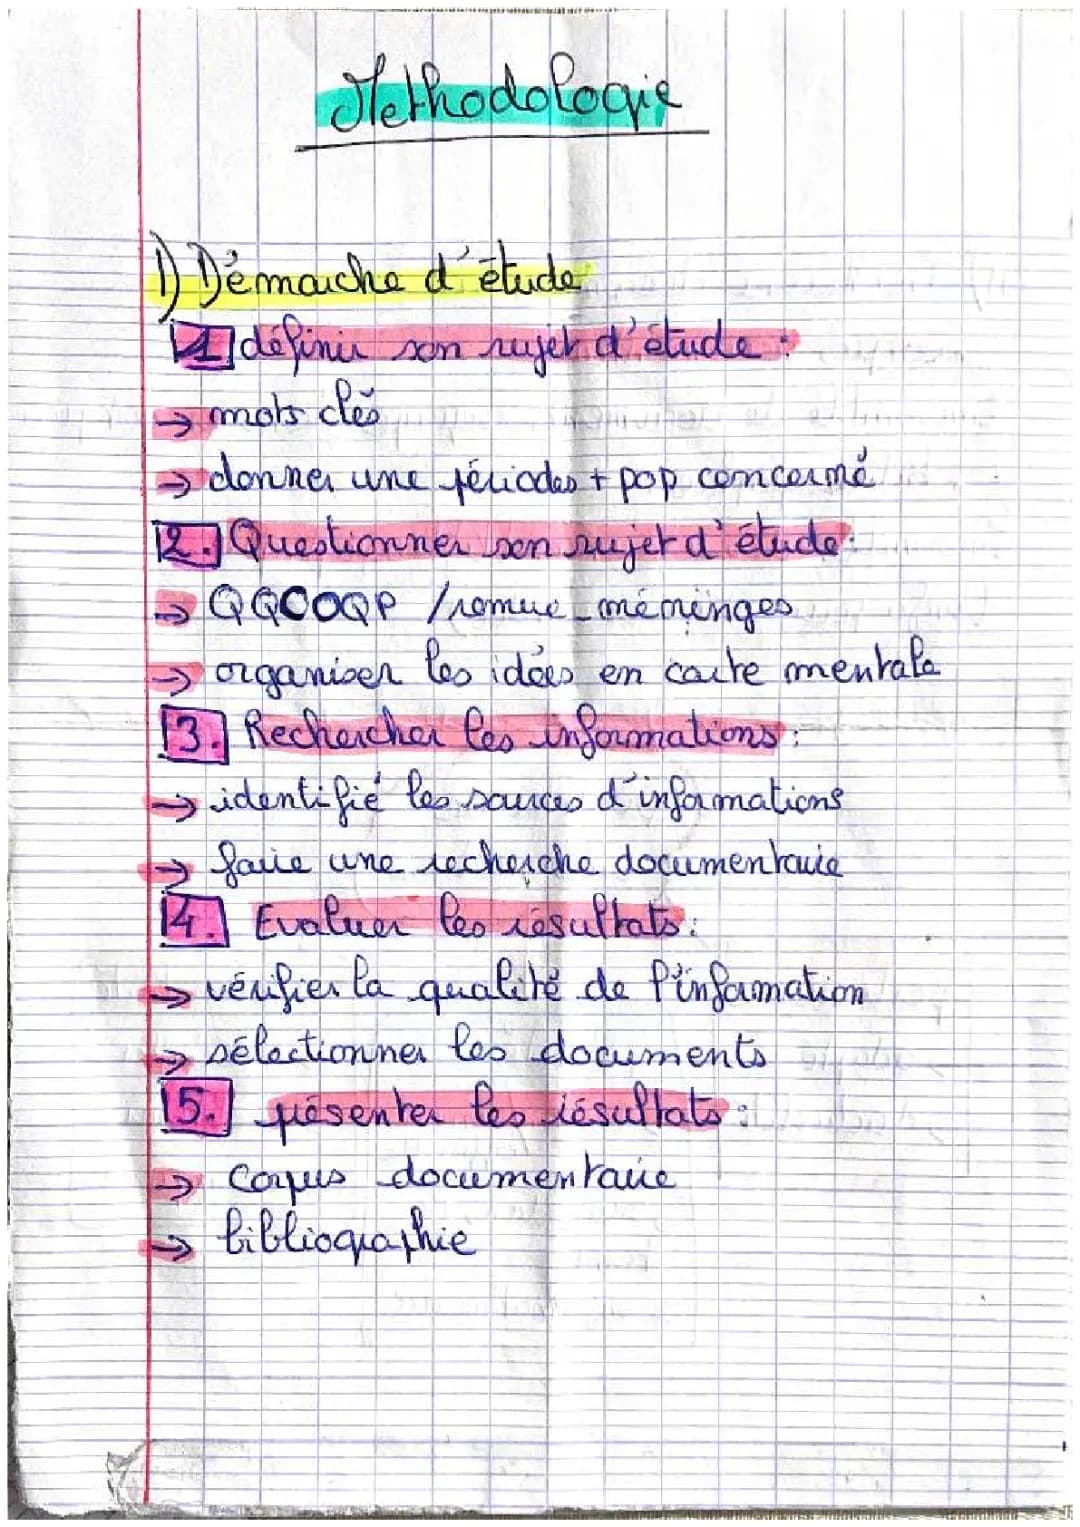 Methodologie
1) Démarche d'étude
1 définir son sujet d'étude :
→ mots clés
→ donner une périodes + pop concerné
2. Questionner son sujet d'étude :
→ QQCOQP / remue_méninges
→ organiser les idées en carte mentale
3. Rechercher les informations :
→ identifié les sources d'informations
→ faire une recherche documentaire
4. Evaluer les résultats :
→ vérifier la qualité de l'information
→ sélectionner les documents
5. présenter les résultats :
→ Corpus documentaire
→ bibliographie